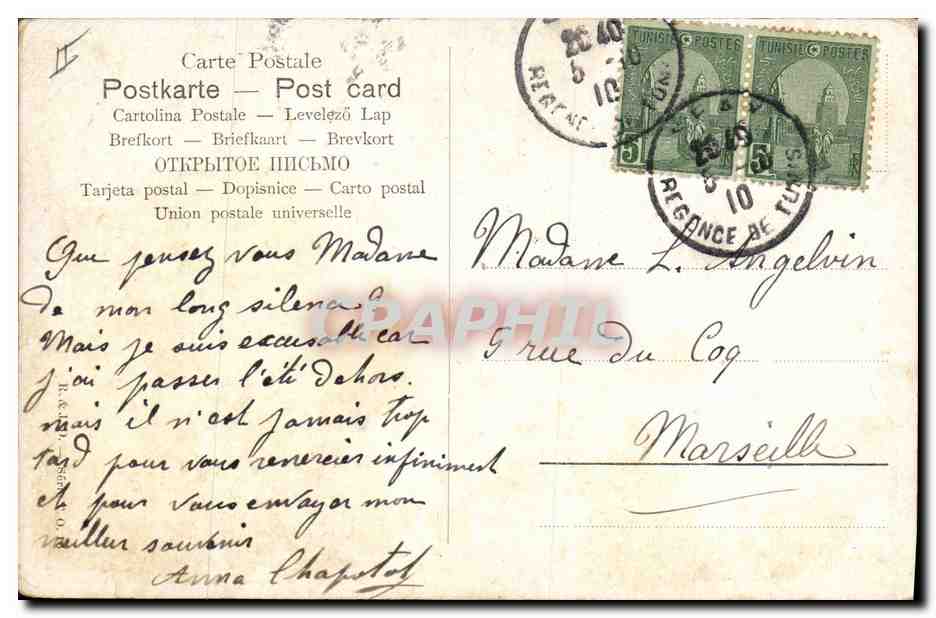 II
Carte Postale
Postkarte — Post card
Cartolina Postale — Levelező Lap
Brefkort — Briefkaart — Brevkort
ОТКРЫТОЕ ПИСЬМО
Tarjeta postal — Dopisnice — Carto postal
Union postale universelle
Que pensez vous Madame
de mon long silence
Mais je suis excusable car
j'ai passer l'été dehors.
mais il n'est jamais trop
tard pour vous remercier infiniment
et pour vous envoyer mon
meilleur souvenir
Anna Chapotot
TUNISIE POSTES
5
TUNISIE POSTES
5
10
REGENCE DE TUNIS
10
Madame L. Angelvin
9 rue du Coq
Marseille
CPAPHIL